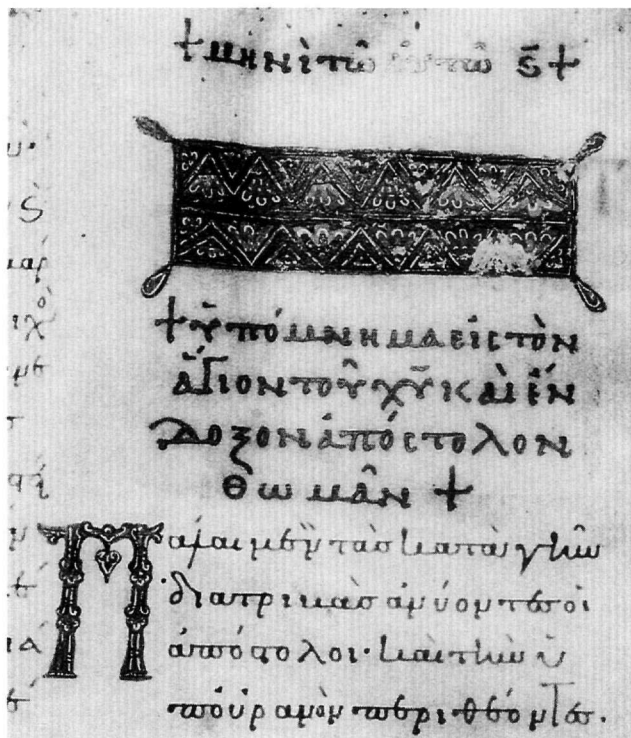 + μηνὶ τῶ αὐτῶ ς̄ +
+ ὑπόμνημα εἰς τὸν
ἅγιον τοῦ χῦ καὶ ἔν
δοξον ἀπόστολον
θωμᾶν +
Πάλαι μὲν τὰς κατὰ γῆν
διατριβὰς ἀνύοντες οἱ
ἀπόστολοι· καὶ τὴν ὑ
π' οὐρανὸν περιθέοντες·